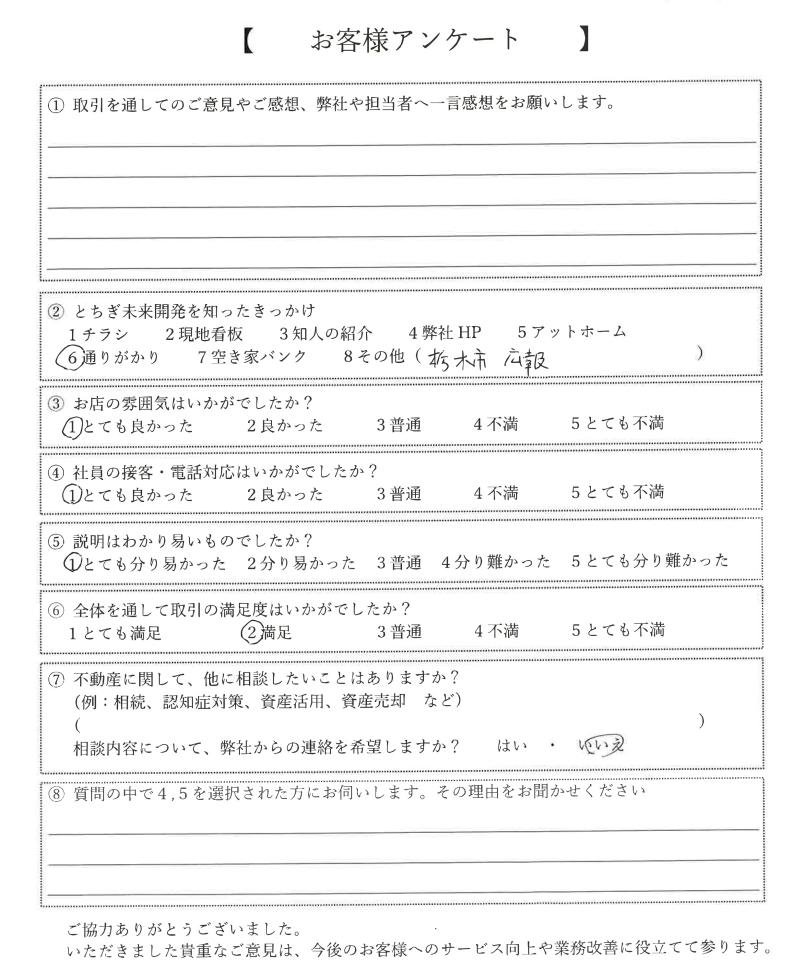 【　お客様アンケート　】
① 取引を通してのご意見やご感想、弊社や担当者へ一言感想をお願いします。
② とちぎ未来開発を知ったきっかけ
1チラシ　2現地看板　3知人の紹介　4弊社HP　5アットホーム
6通りがかり　7空き家バンク　8その他（栃木市 広報　）
③ お店の雰囲気はいかがでしたか？
1とても良かった　2良かった　3普通　4不満　5とても不満
④ 社員の接客・電話対応はいかがでしたか？
1とても良かった　2良かった　3普通　4不満　5とても不満
⑤ 説明はわかり易いものでしたか？
1とても分り易かった　2分り易かった　3普通　4分り難かった　5とても分り難かった
⑥ 全体を通して取引の満足度はいかがでしたか？
1とても満足　2満足　3普通　4不満　5とても不満
⑦ 不動産に関して、他に相談したいことはありますか？
（例：相続、認知症対策、資産活用、資産売却　など）
（　）
相談内容について、弊社からの連絡を希望しますか？　はい　・　いいえ
⑧ 質問の中で4,5を選択された方にお伺いします。その理由をお聞かせください
ご協力ありがとうございました。
いただきました貴重なご意見は、今後のお客様へのサービス向上や業務改善に役立てて参ります。